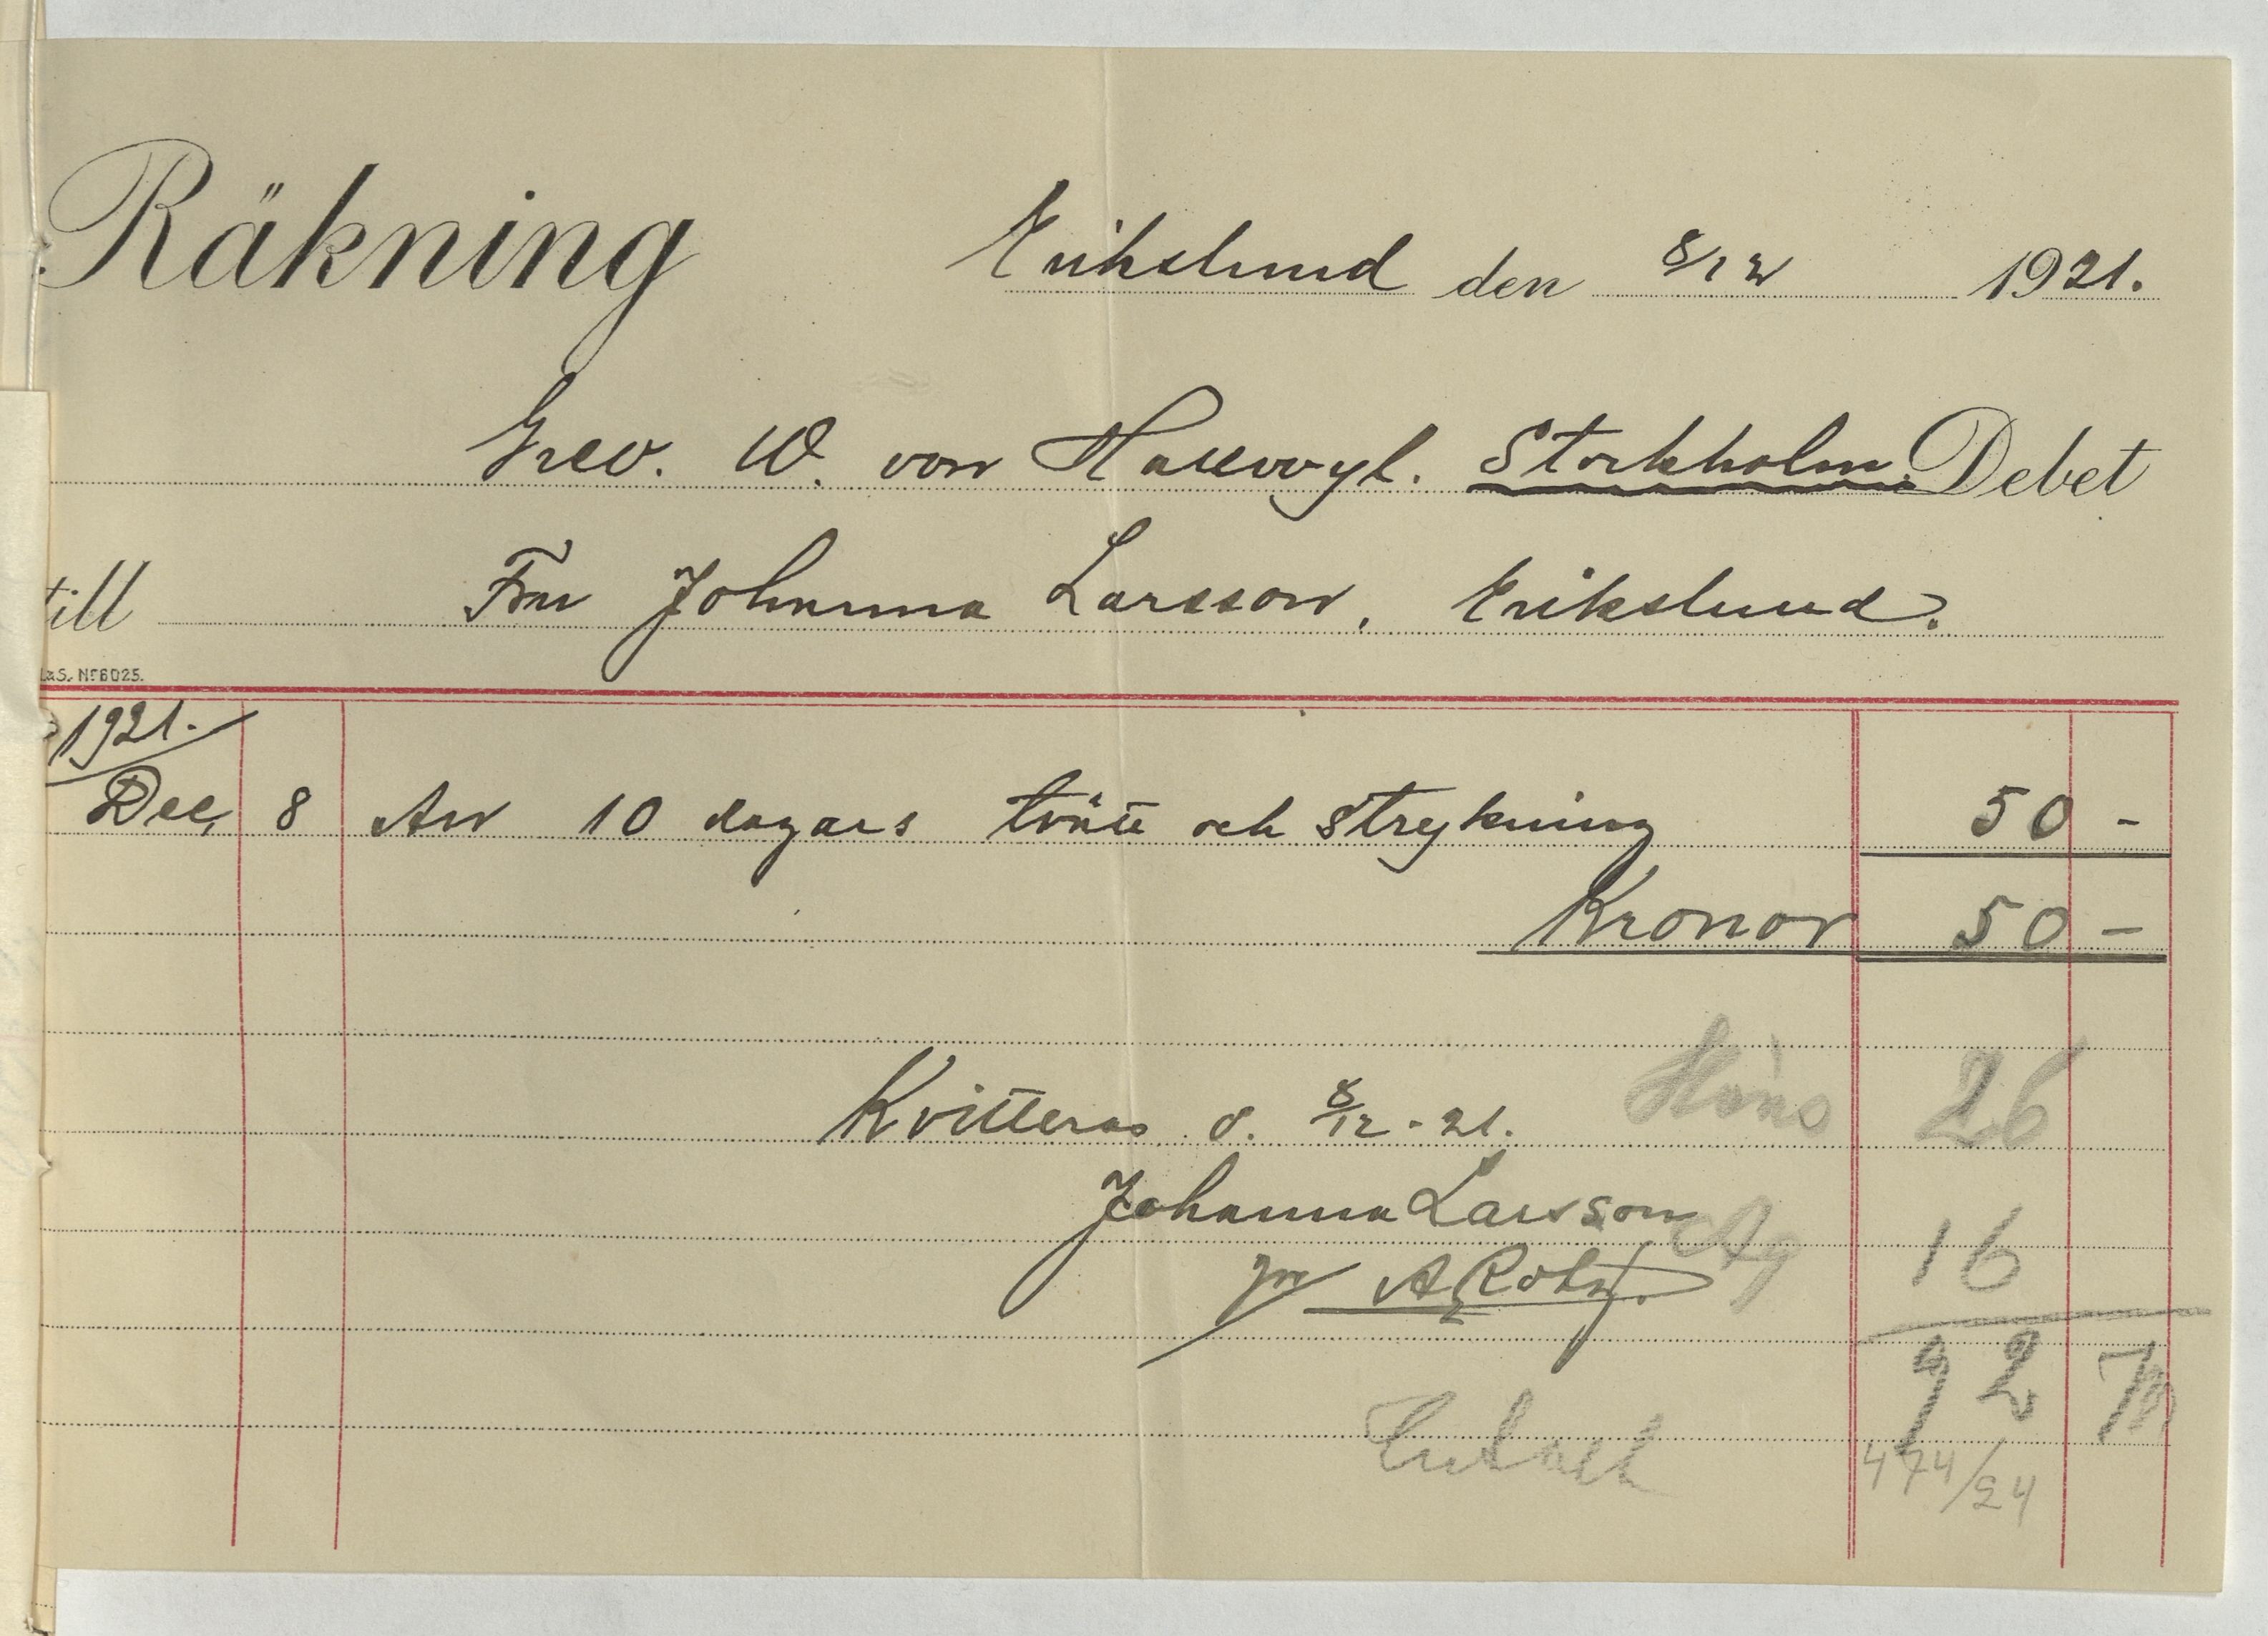 Räkning Erikslund den 8/12 1921.
Grev. W. von Hallwyl. Stockholm. Debet
till Fru Johanna Larsson, Erikslund.
LaS. Nr 6025.
1921.
Dec, 8 Av 10 dagars tvätt och strykning 50 -
Kronor 50 -
Höns 26
Kvitteras d. 8/12 - 21.
Johanna Larsson
Äg 16
gm A
92
474/24